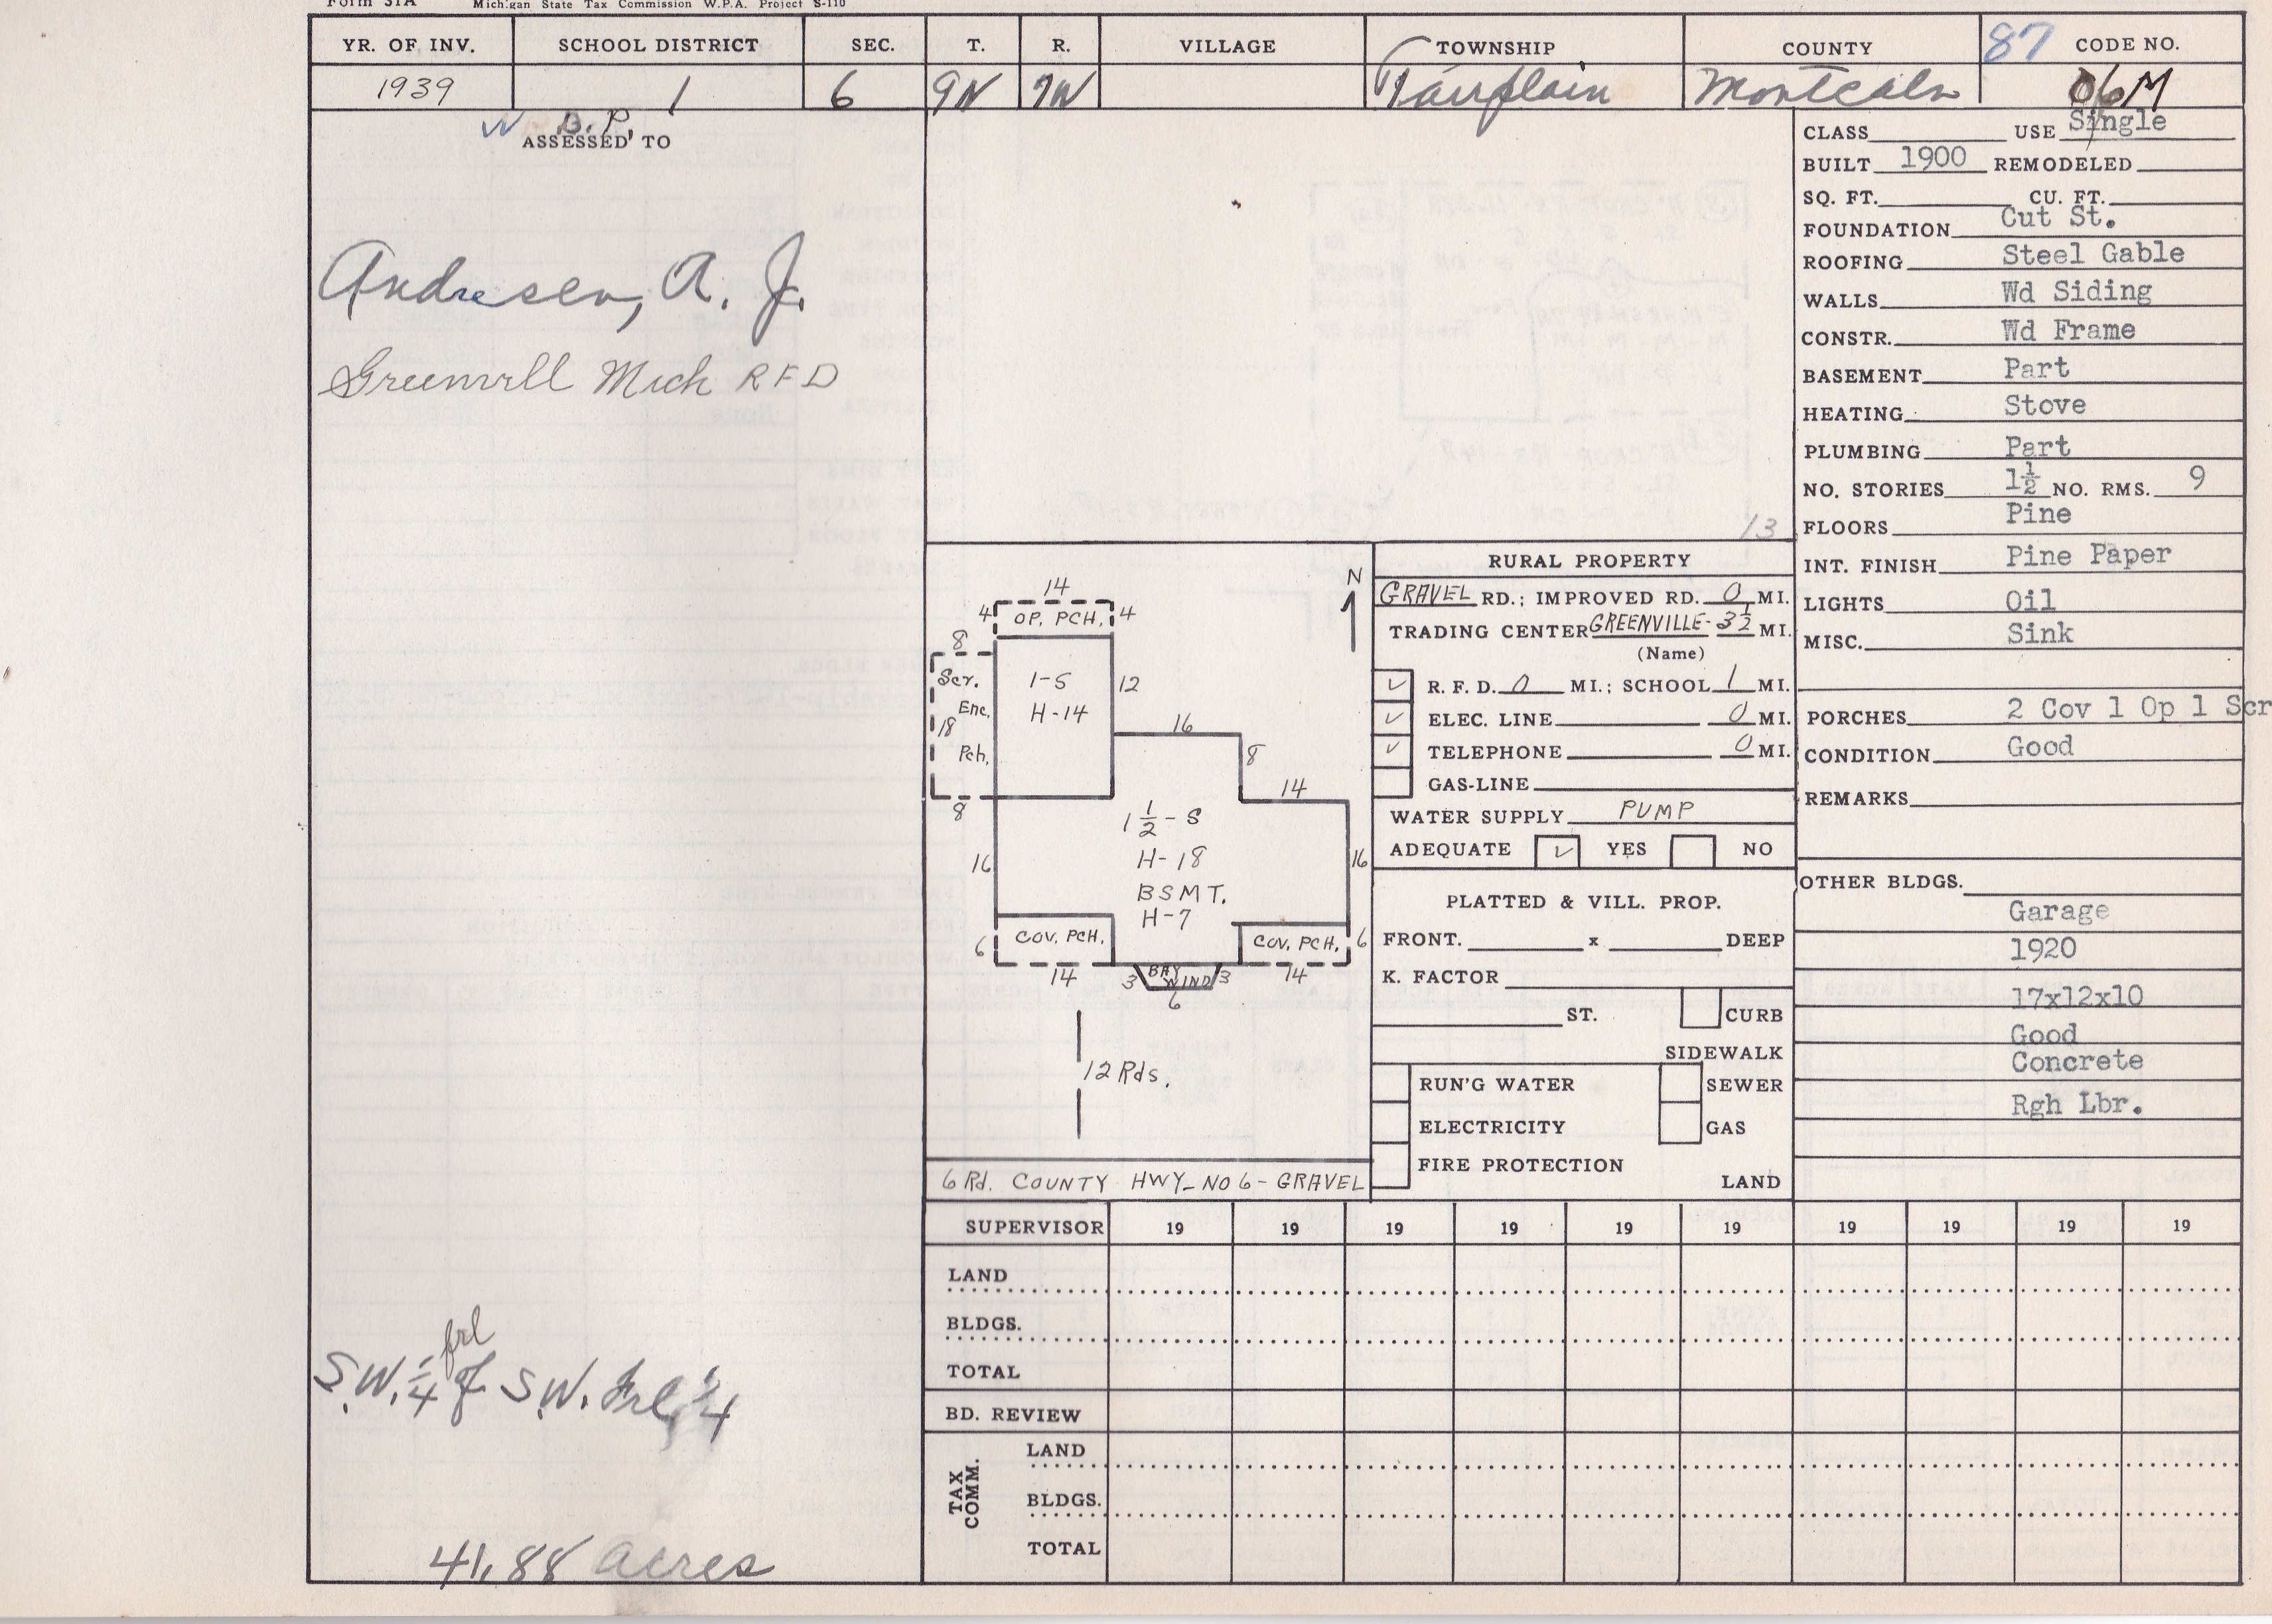 Form 31A Michigan State Tax Commission W.P.A. Project S-110
YR. OF INV. SCHOOL DISTRICT SEC. T. R. VILLAGE TOWNSHIP COUNTY 87 CODE NO.
1939 1 6 9N 7W Fairplain Montcalm 06M
B.P.
ASSESSED TO
Andresen, A. J.
Greenvill Mich RFD
S.W. 1/4 frl of S.W. Frl. 1/4
41.88 acres
13
14
4 OP. PCH. 4
8
Scr. Enc. Pch.
18
1-S
H-14
12
16
8
14
8
1 1/2 - S
H-18
BSMT.
H-7
16
16
6 COV. PCH. COV. PCH. 6
14 3 BAY WIND 3 14
6
N
12 Rds.
6 Rd. COUNTY HWY_NO 6 - GRAVEL
RURAL PROPERTY
GRAVEL RD.; IMPROVED RD. 0 MI.
TRADING CENTER GREENVILLE - 3 1/2 MI.
(Name)
✓ R. F. D. 0 MI.; SCHOOL 1 MI.
✓ ELEC. LINE 0 MI.
✓ TELEPHONE 0 MI.
GAS-LINE
WATER SUPPLY PUMP
ADEQUATE ✓ YES NO
PLATTED & VILL. PROP.
FRONT. x DEEP
K. FACTOR
ST. CURB
SIDEWALK
RUN'G WATER SEWER
ELECTRICITY GAS
FIRE PROTECTION
LAND
CLASS USE Single
BUILT 1900 REMODELED
SQ. FT. CU. FT.
FOUNDATION Cut St.
ROOFING Steel Gable
WALLS Wd Siding
CONSTR. Wd Frame
BASEMENT Part
HEATING Stove
PLUMBING Part
NO. STORIES 1½ NO. RMS. 9
FLOORS Pine
INT. FINISH Pine Paper
LIGHTS Oil
MISC. Sink
PORCHES 2 Cov 1 Op 1 Scr
CONDITION Good
REMARKS
OTHER BLDGS.
Garage
1920
17x12x10
Good
Concrete
Rgh Lbr.
SUPERVISOR 19 19 19 19 19 19 19 19 19 19
LAND
BLDGS.
TOTAL
BD. REVIEW
TAX COMM.
LAND
BLDGS.
TOTAL